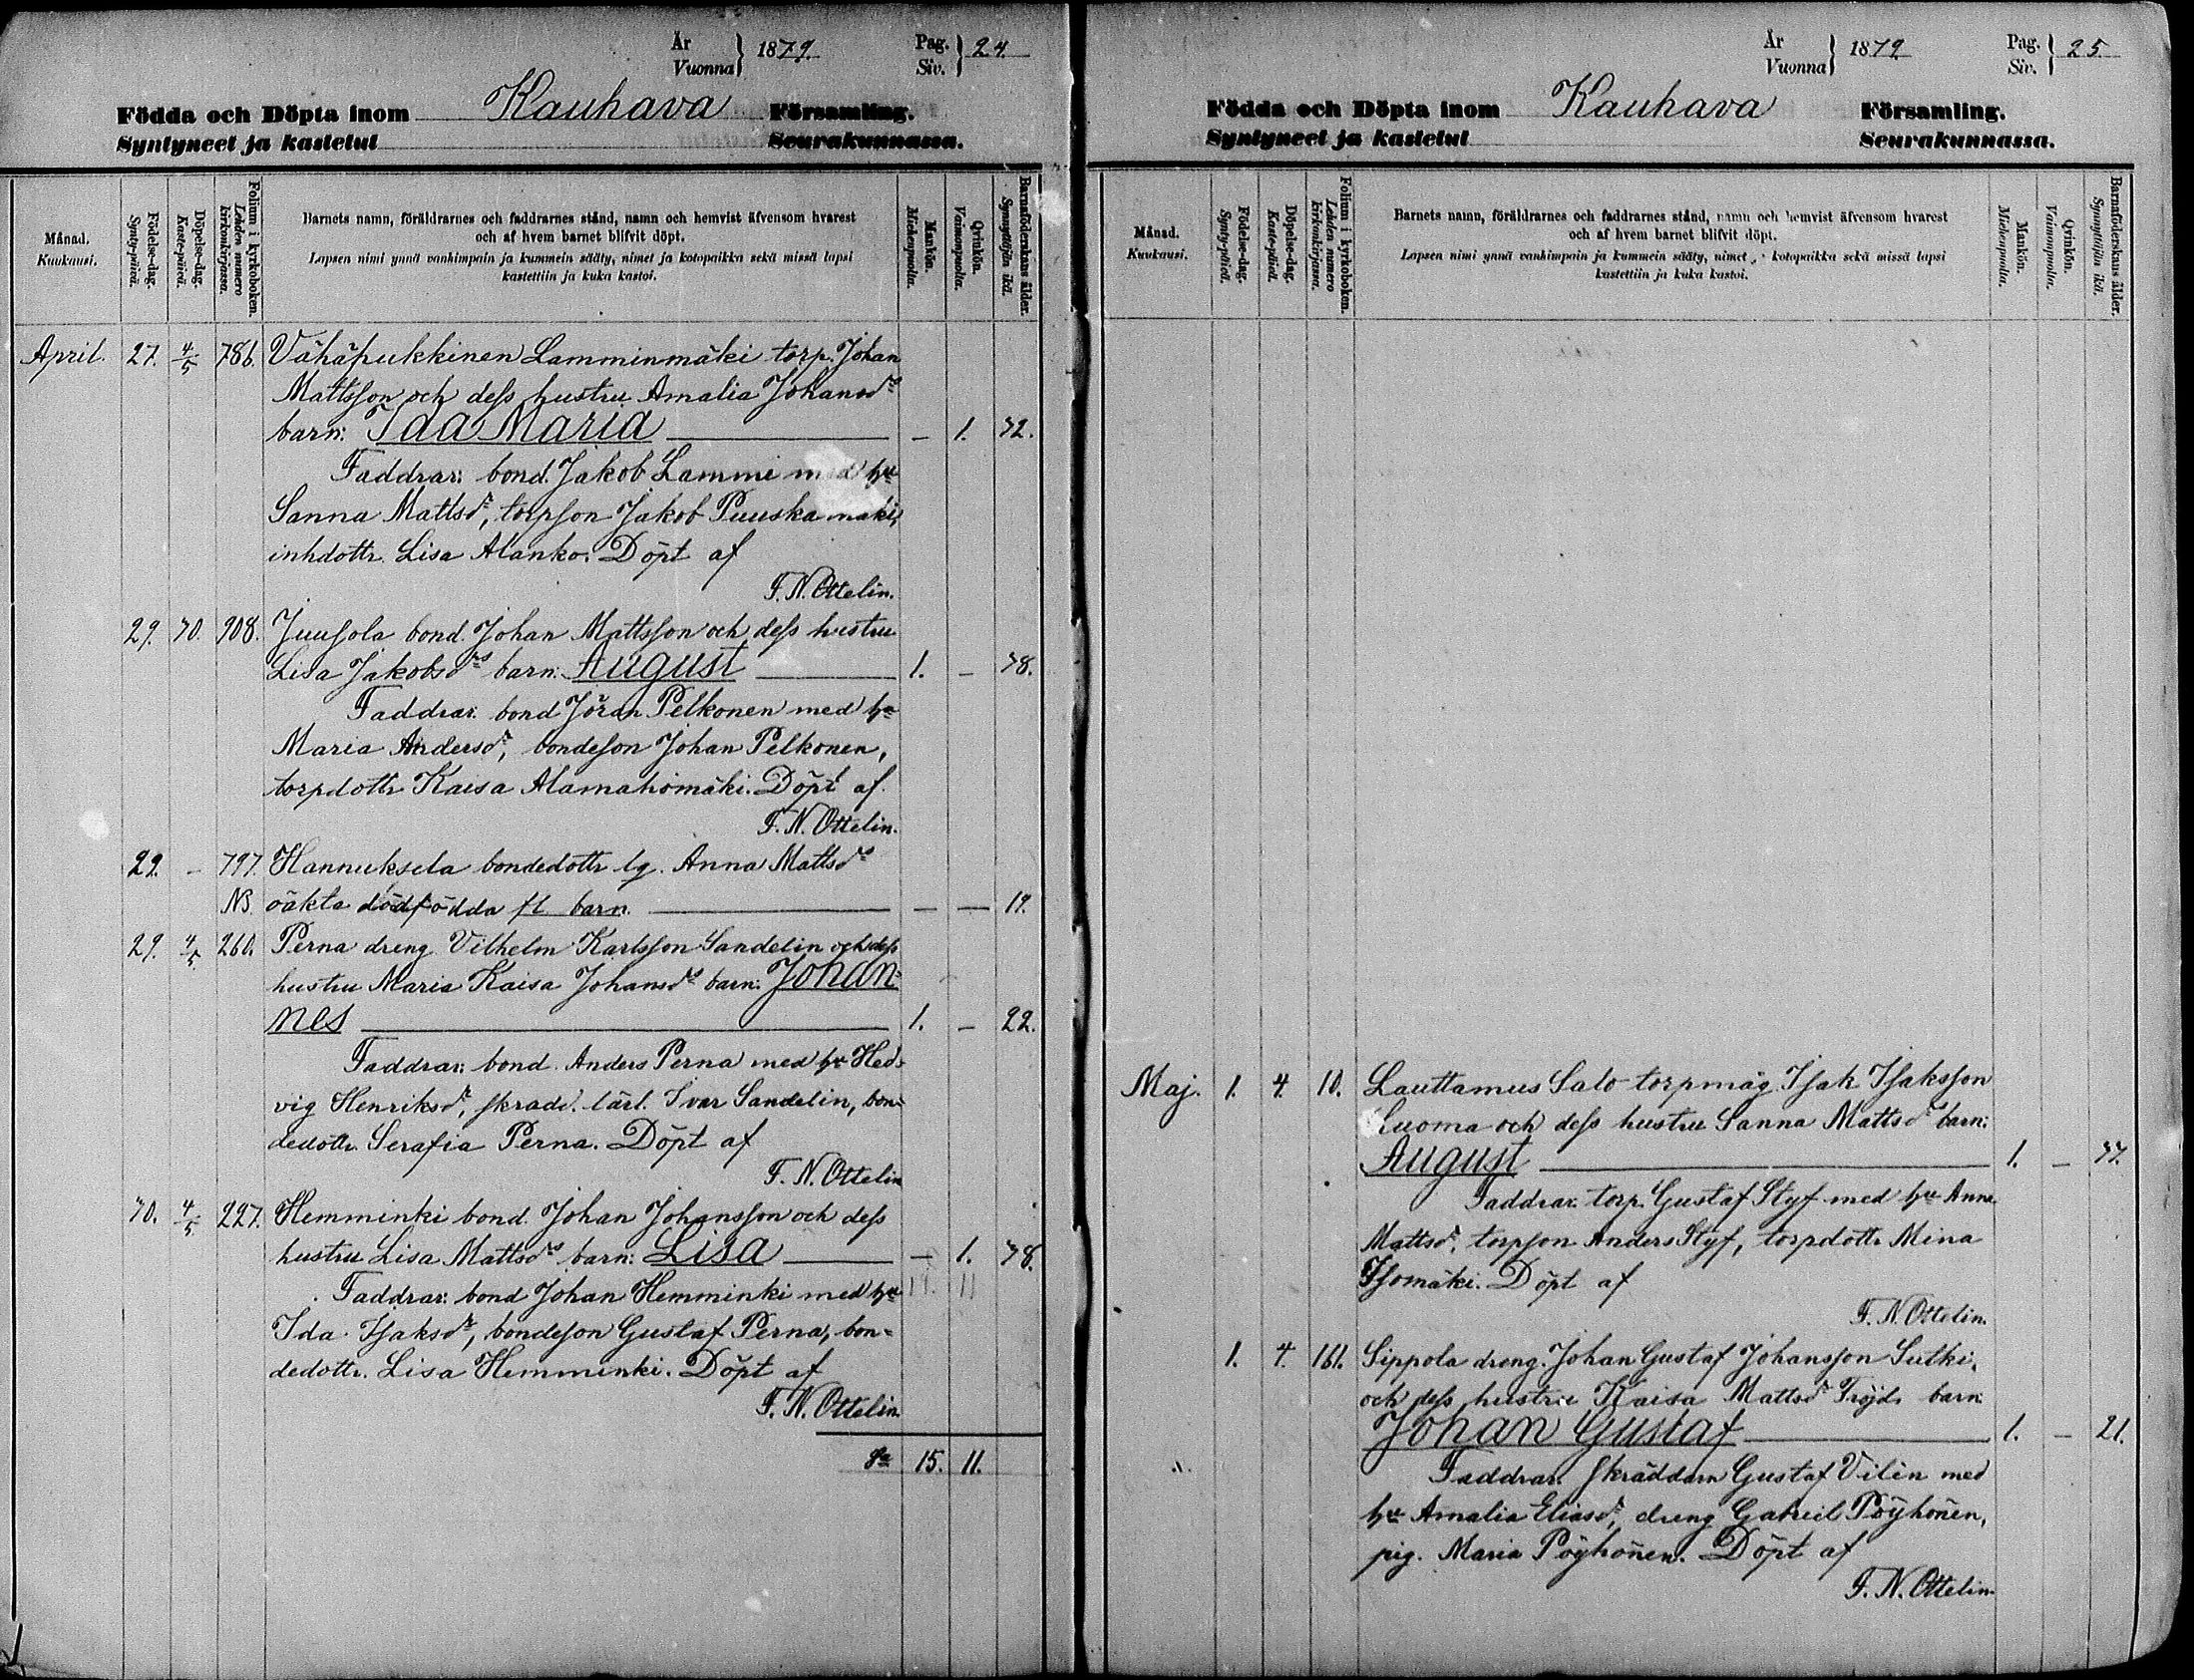 År
Vuonna
1879.
Pag.
Siv.
24.
Födda och Döpta inom Kauhava Församling.
Syntyneet ja kastetut Seurakunnassa.
Månad.
Kuukausi.
Födelse-dag.
Synty-päivä.
Döpelse-dag.
Kaste-päivä.
Folium i kyrkoboken.
Lehden numero kirkonkirjassa.
Barnets namn, föräldrarnes och faddrarnes stånd, namn och hemvist äfvensom hvarest
och af hvem barnet blifvit döpt.
Lapsen nimi ynnä vanhimpain ja kummein sääty, nimet ja kotopaikka sekä missä lapsi
kastettiin ja kuka kastoi.
Mankön.
Miehenpuolta.
Qvinkön.
Vaimonpuolta.
Barnaföderskans ålder.
Synnyttäjän ikä.
April. 27. 4/5 786. Vähäpukkinen Lamminmäki torp. Johan
Mattsson och dess hustru Amalia Johansdrs
barn: Ida Maria — 1. 32.
Faddrar: bond. Jakob Lammi med hu
Sanna Mattsdr, torpson Jakob Puuskamäki,
inhdottr. Lisa Alanko. Döpt af
F. N. Ottelin.
29. 30. 908. Juusola bond. Johan Mattsson och dess hustru
Lisa Jakobsdrs barn: August 1. — 38.
Faddrar: bond Jöran Pelkonen med hu
Maria Andersdr, bondeson Johan Pelkonen,
torpdottr Kaisa Alamahömäki. Döpt af
F. N. Ottelin.
29. — 797. Hannuksela bondedottr lg. Anna Mattsdrs
NB. oäkta dödfödda fl. barn. — — 19.
29. 4/5 260. Perna dreng Vilhelm Karlsson Sandelin och dess
hustru Maria Kaisa Johansdrs barn: Johan-
nes 1. — 22.
Faddrar: bond. Anders Perna med hu Hed-
vig Henriksdr, skradd. lärl. Ivar Sandelin, bon-
dedottr. Serafia Perna. Döpt af
F. N. Ottelin
30. 4/5 227. Hemminki bond. Johan Johansson och dess
hustru Lisa Mattsdrs barn: Lisa — 1. 38.
Faddrar: bond Johan Hemminki med hu
Ida Isaksdr, bondeson Gustaf Perna, bon-
dedottr. Lisa Hemminki. Döpt af
F. N. Ottelin
Sa 15. 11.
År
Vuonna
1879.
Pag.
Siv.
25.
Födda och Döpta inom Kauhava Församling.
Syntyneet ja kastetut Seurakunnassa.
Månad.
Kuukausi.
Födelse-dag.
Synty-päivä.
Döpelse-dag.
Kaste-päivä.
Folium i kyrkoboken.
Lehden numero kirkonkirjassa.
Barnets namn, föräldrarnes och faddrarnes stånd, namn och hemvist äfvensom hvarest
och af hvem barnet blifvit döpt.
Lapsen nimi ynnä vanhimpain ja kummein sääty, nimet kotopaikka sekä missä lapsi
kastettiin ja kuka kastoi.
Mankön.
Miehenpuolta.
Qvinkön.
Vaimonpuolta.
Barnaföderskans ålder.
Synnyttäjän ikä.
Maj. 1. 4. 10. Lauttamus Salo torpmåg Isak Isaksson
Luoma och dess hustru Sanna Mattsdrs barn:
August 1. — 37.
Faddrar: torp. Gustaf Styf med hu Anna
Mattsdr, torpson Anders Styf, torpdottr Mina
Isomäki. Döpt af
F. N. Ottelin.
1. 4. 161. Sippola dreng. Johan Gustaf Johansson Sutki,
och dess hustru Kaisa Mattsdr Fröjds barn:
Johan Gustaf 1. — 21.
Faddrar: skräddarn Gustaf Vilén med
hu Amalia Eliasdr, dreng Gabriel Pöyhönen,
pig. Maria Pöyhönen. Döpt af
F. N. Ottelin.